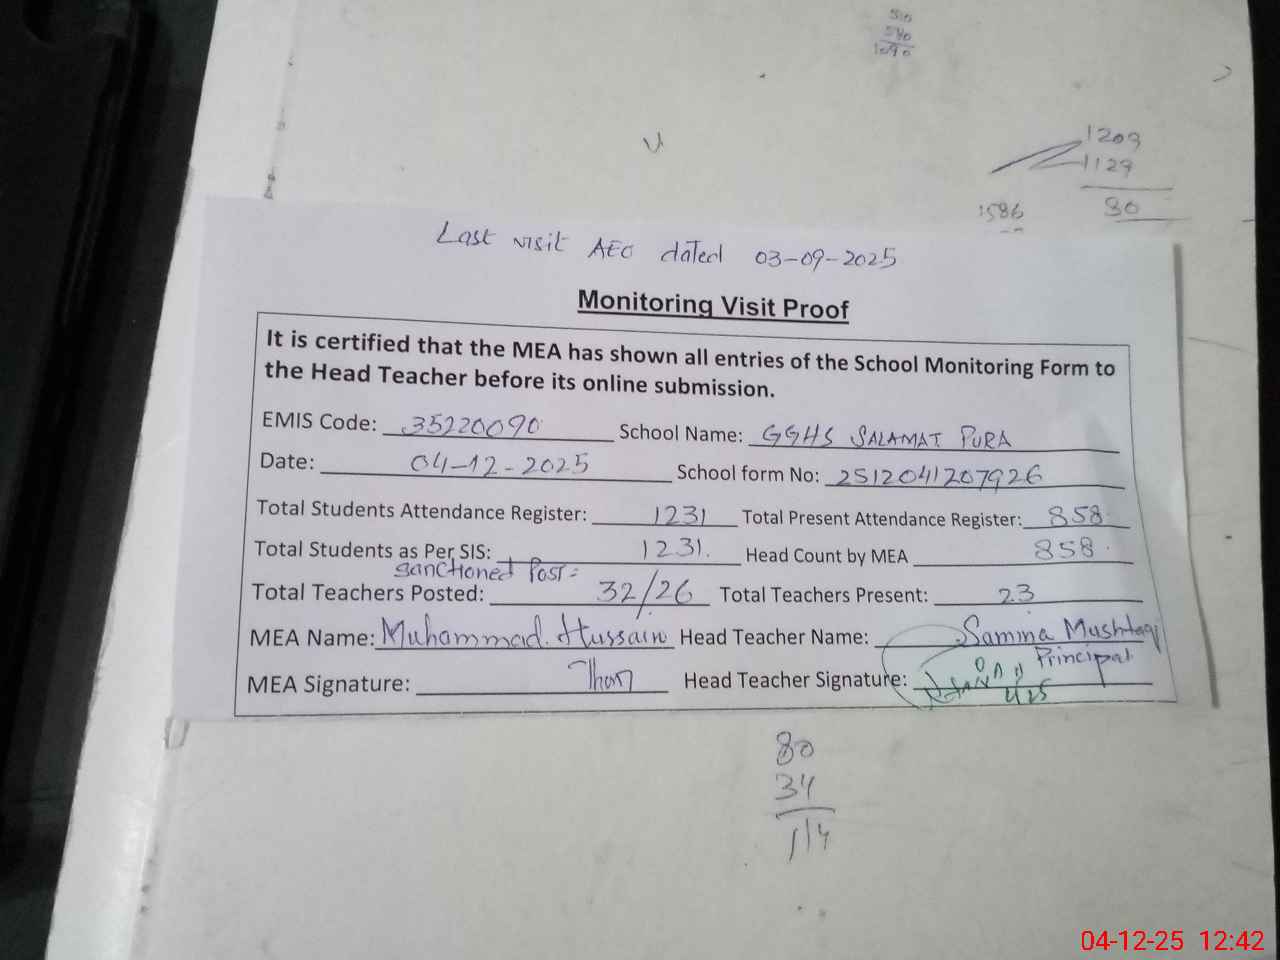 510
580
1090
1209
1129
80
1586
Last visit AEO dated 03-09-2025
Monitoring Visit Proof
It is certified that the MEA has shown all entries of the School Monitoring Form to
the Head Teacher before its online submission.
EMIS Code: 35220090 School Name: GGHS SALAMAT PURA
Date: 04-12-2025 School form No: 2512041207926
Total Students Attendance Register: 1231 Total Present Attendance Register: 858
Total Students as Per SIS: 1231. Head Count by MEA 858
Sanctioned Post=
Total Teachers Posted: 32/26 Total Teachers Present: 23
MEA Name: Muhammad. Hussain Head Teacher Name: Samina Mushtaq
Principal
MEA Signature: Head Teacher Signature:
80
34
114
04-12-25 12:42